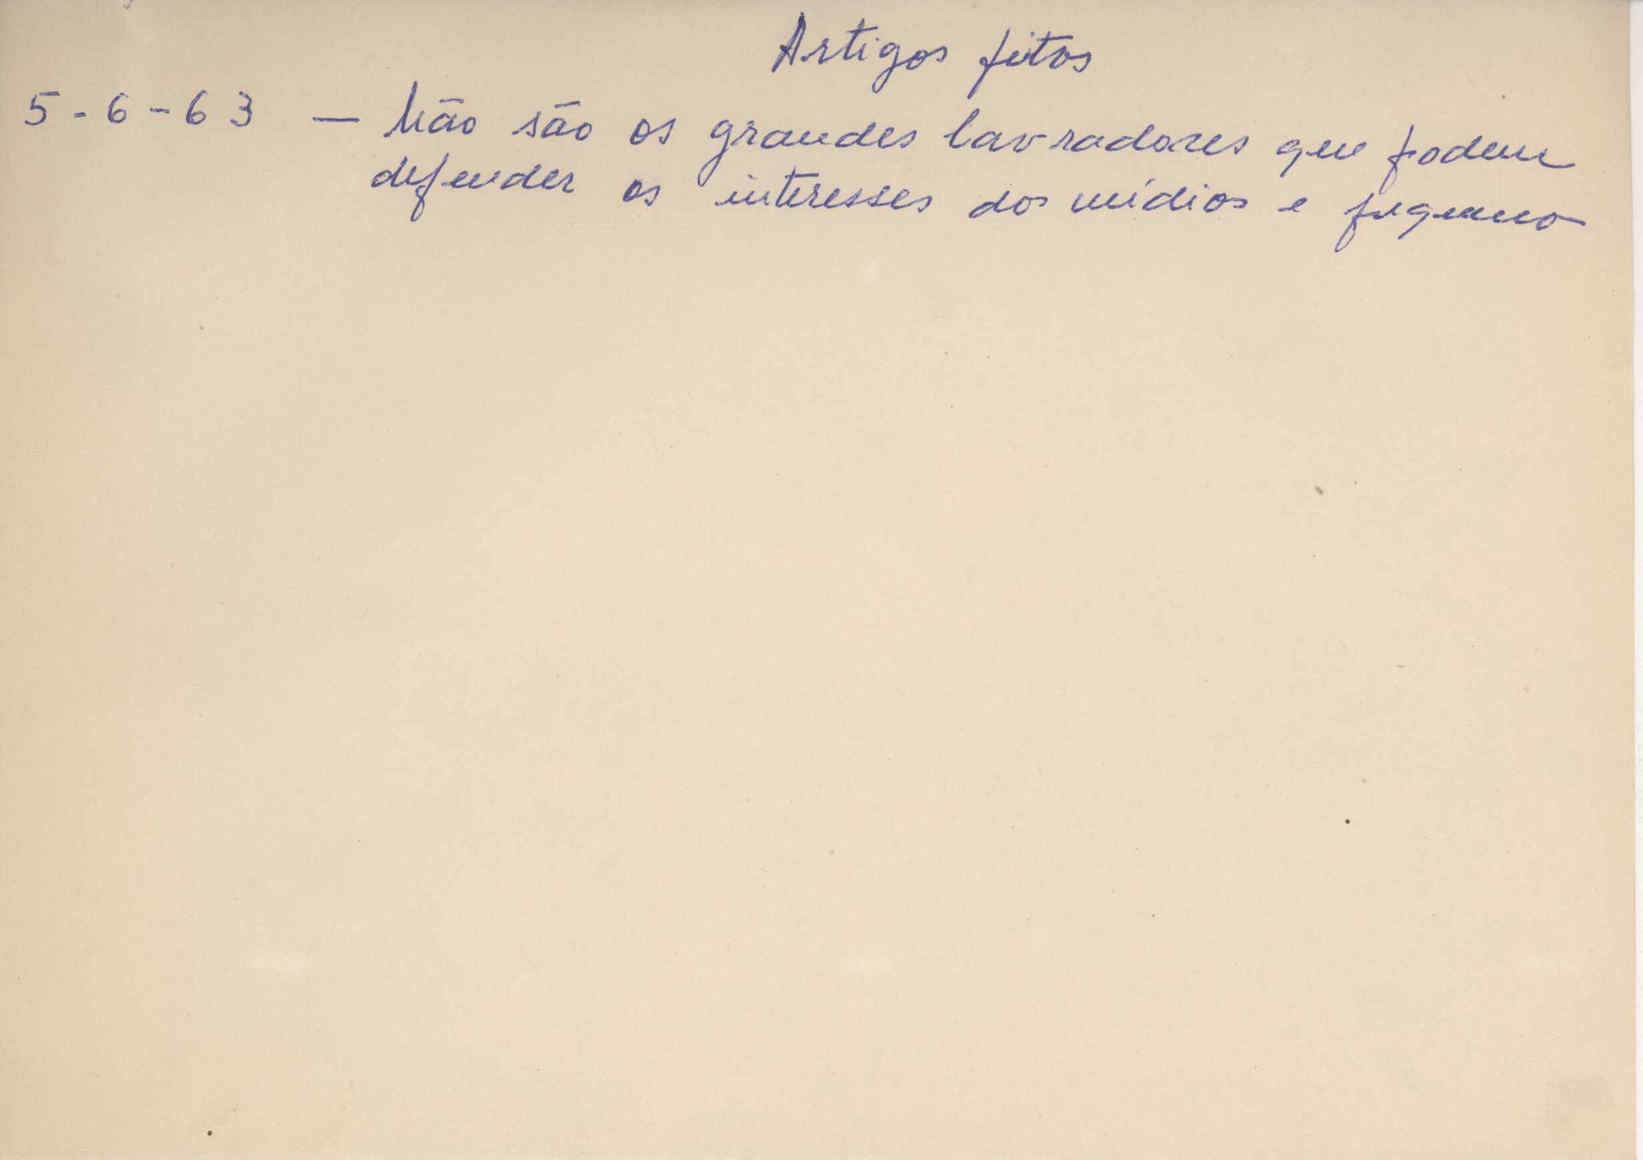 Artigos feitos
5-6-63 — Não são os grandes lavradores que podem
defender os interesses dos médios e pequeno